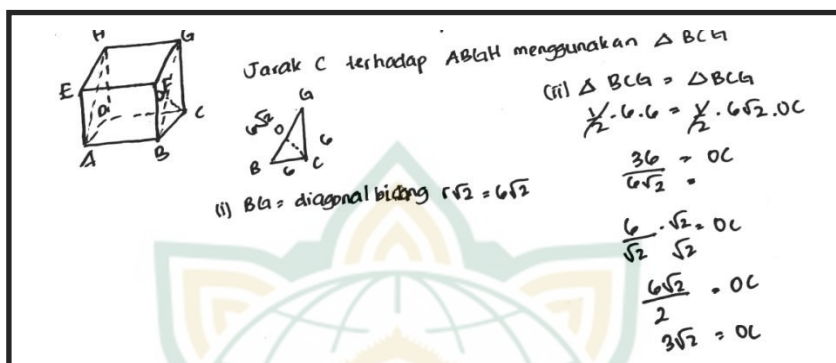 H
G
E
F
D
C
A
B
Jarak C terhadap ABGH menggunakan Δ BCG
G
6√2
O
6
B
6
C
(i) BG = diagonal bidang r√2 = 6√2
(ii) Δ BCG = Δ BCG
1/2 · 6 · 6 = 1/2 · 6√2 · OC
36/6√2 = OC
=
6/√2 · √2/√2 = OC
6√2/2 = OC
3√2 = OC